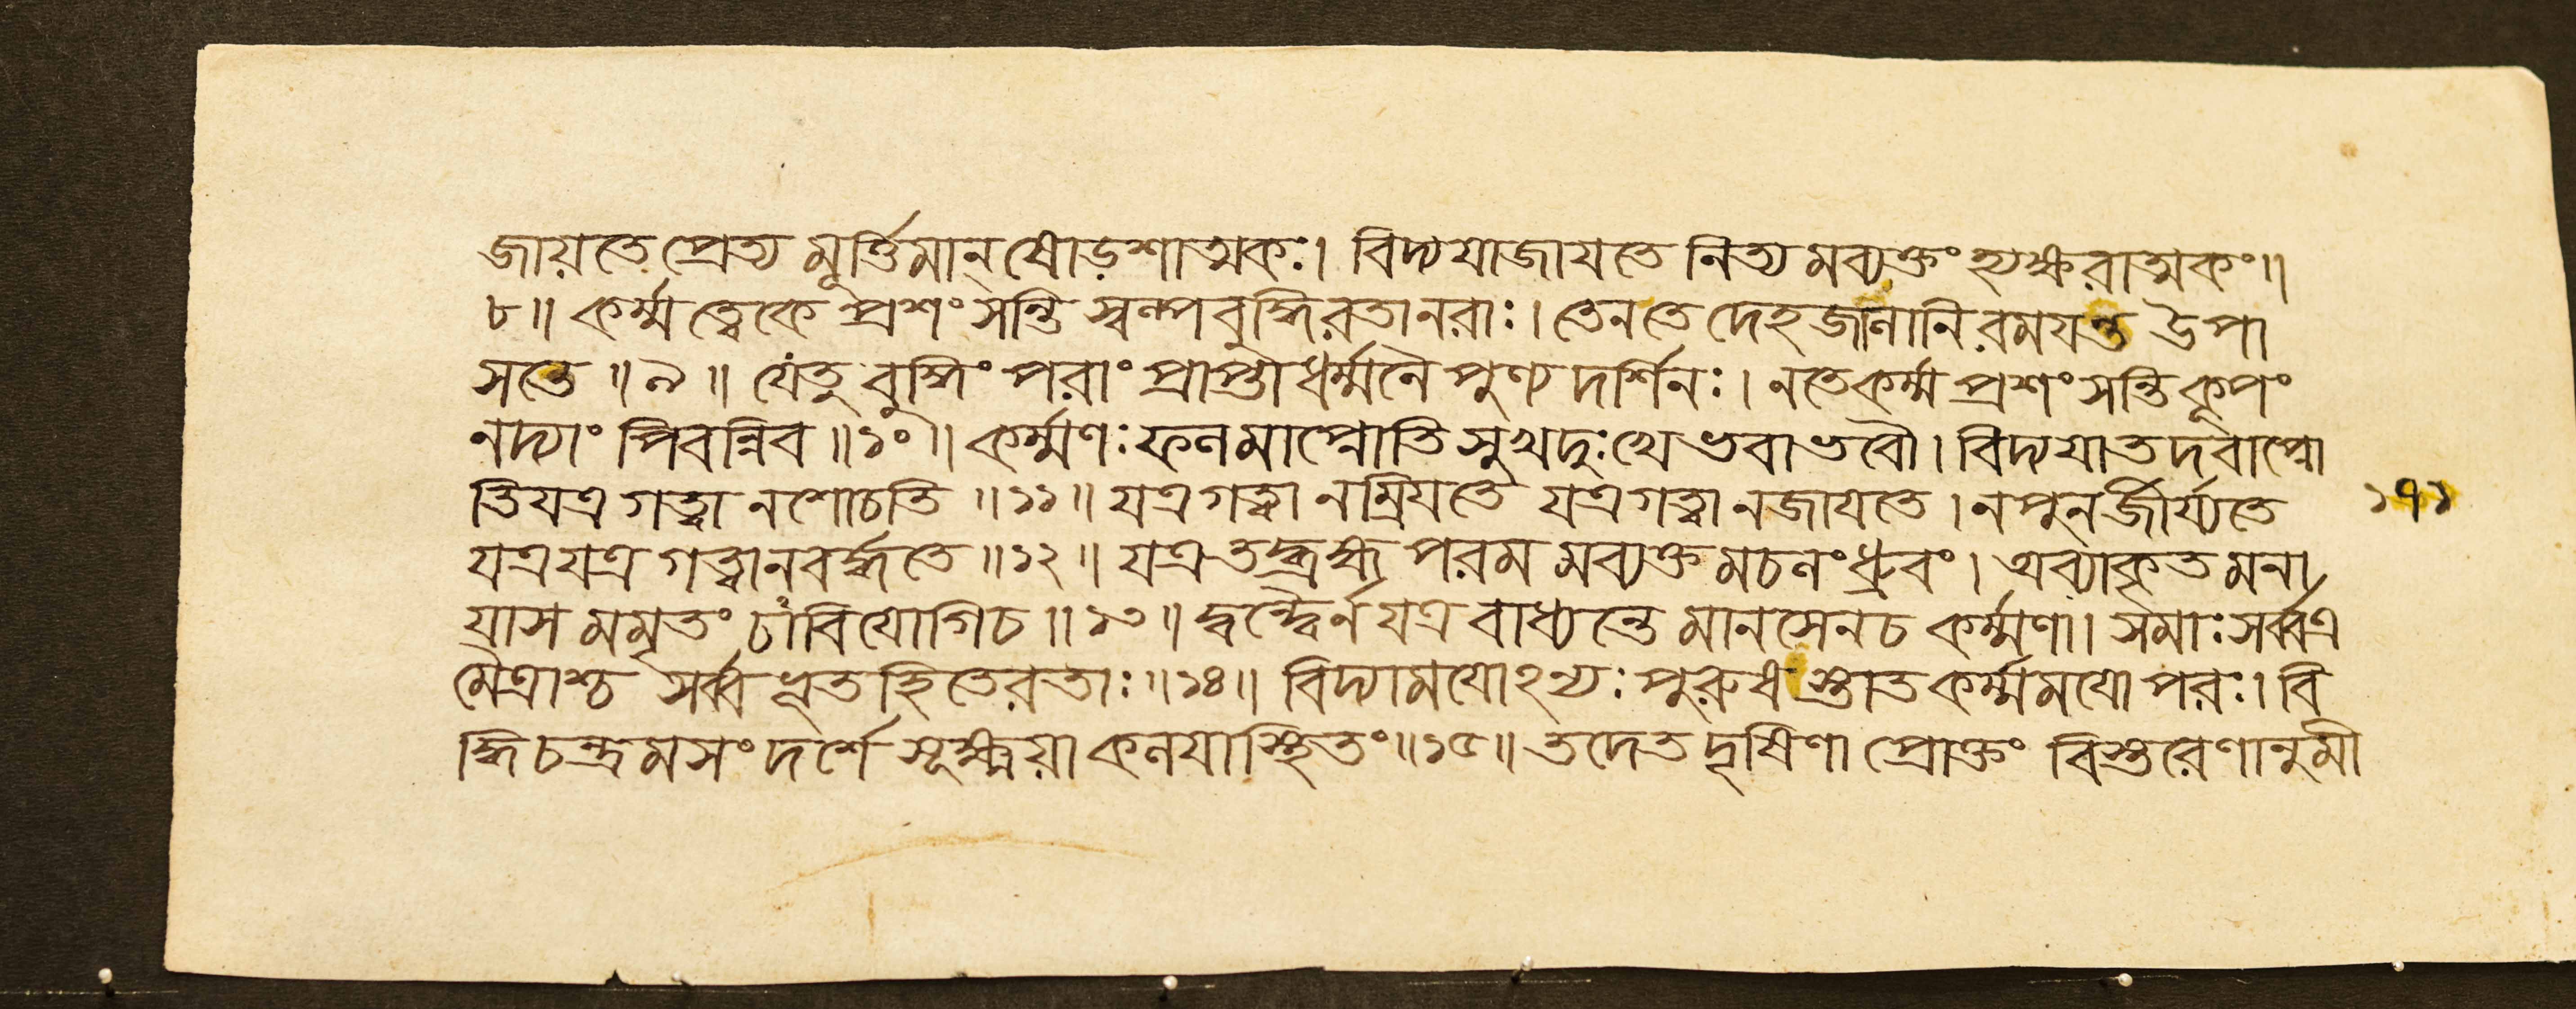 জায়তে প্রেত্য মূর্ত্তিমান্ ষোড়শাত্মকঃ। বিদ্যয়াজায়তে নিত্য মব্যক্তং হ্যক্ষরাত্মকং॥
৮॥ কর্ম্ম ত্বেকে প্রশংসন্তি স্বল্পবুদ্ধিরতানরাঃ। তেনতে দেহজালানি রময়ন্ত উপা
সতে ॥৯॥ যেতু বুদ্ধিং পরাং প্রাপ্তা ধর্ম্মনৈ পুণ্য দর্শিনঃ। নতেকর্ম্ম প্রশংসন্তি কূপং
নদ্যাং পিবন্নিব ॥১০॥ কর্ম্মণঃ ফলমাপ্নোতি সুখদুঃখে ভবাভবৌ। বিদ্যয়াতদবাপ্নো
তি যত্র গত্বা নশোচতি ॥১১॥ যত্র গত্বা নম্রিয়তে যত্র গত্বা নজায়তে। নপুনর্জীর্য্যতে
যত্র যত্র গত্বা নবর্দ্ধতে ॥১২॥ যত্র তদ্ব্রহ্ম পরম মব্যক্ত মচলং ধ্রুবং। অব্যাকৃত মনা
য়াস মমৃতং চাবিয়োগিচ ॥১৩॥ দ্বন্দ্বৈর্ন যত্র বাধ্যন্তে মানসেনচ কর্ম্মণা। সমাঃ সর্ব্বত্র
মৈত্রাশ্চ সর্ব্ব ভূতহিতেরতাঃ ॥১৪॥ বিদ্যাময়োঽন্যঃ পুরুষ স্তাত কর্ম্মময়ো পরঃ। বি
দ্ধি চন্দ্রমসং দর্শে সূক্ষ্ময়া কলয়া স্থিতং ॥১৫॥ তদেত দৃষিণা প্রোক্তং বিস্তরেণানুমী
১৭১